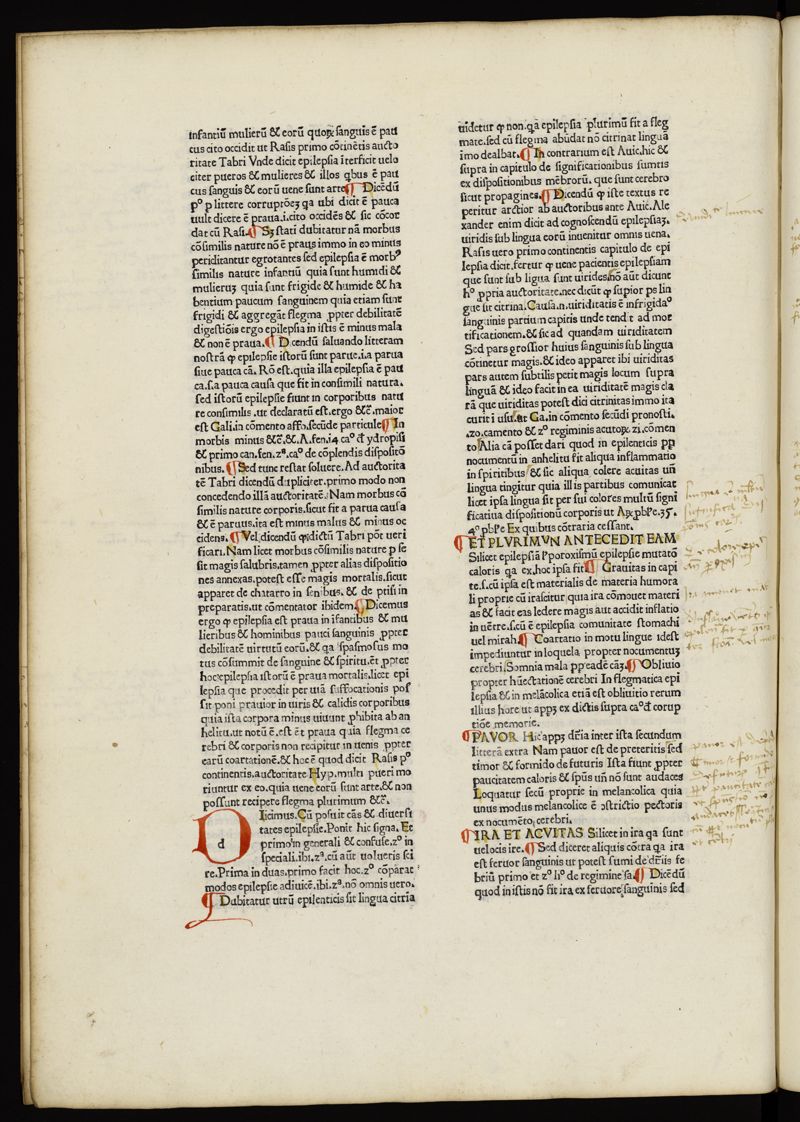 infantiū mulierū & eorū quoꝝ sanguis ē pau
cus cito occidit ut Rasis primo cōtinētis aucto
ritate Tabri Vnde dicit epilepsia īterficit uelo
citer pueros & mulieres & illos qbus ē pau
cus sanguis & eorū uene sunt arte ¶ Dicēdū
p° p littere corruptōeꝫ qa ubi dicit ē pauca
uult dicere ē praua.i.cito occidēs & sic cōcor
dat cū Rasi. ¶ Sꝫ stati dubitatur nā morbus
cōsimilis nature nō ē praus immo in eo minus
periditantur egrotantes sed epilepsia ē morbꝰ
similis nature infantiū quia sunt humidi &
mulieruꝫ quia sunt frigide & humide & ha
bentium paucum sanguinem quia etiam sunt
frigidi & aggregāt flegma ꝓpter debilitatē
digestiōis ergo epilepsia in istis ē minus mala
& non ē praua. ¶ Dcendū saluando litteram
nostrā ꝙ epilepsie istorū sunt parue.i.a parua
siue pauca cā. Rō est.quia illa epilepsia ē pau
ca.s.a pauca causa que fit in consimili natura.
sed istorū epilepsie fiunt in corporibus natu
re consimilis .ut declaratū est.ergo &č.maior
est Gali.in cōmento affo.secūde particule ¶ In
morbis minus &č.&.A.fen.14 ca° đ ydropisi
& primo can.fen.zª.ca° de cōplendis dispositō
nibus. ¶ Sed tunc restat soluere.Ad auctorita
tē Tabri dicendū dupliciter.primo modo non
concedendo illā auctoritatē: Nam morbus cō
similis nature corporis.sicut fit a parua causa
& ē paruus.ita est minus malus & minus oc
cidens. ¶ Vel dicendū ꝙ dictū Tabri pōt ueri
ficari. Nam licet morbus cōsimilis nature p se
sit magis salubris.tamen ꝓpter alias dispositio
nes annexas.potest esse magis mortalis.sicut
apparet de chatarro in senibus. & de ptisi in
preparatis.ut cōmentator ibidem. ¶ Dicemus
ergo ꝙ epilepsia est praua in ifantibus & mu
lieribus & hominibus pauci sanguinis ꝓpter
debilitatē uirtutū eorū.& qa spasmosus mo
tus cōsummit de sanguine & spiritu.et ꝓpter
hoc epilepsia istorū ē praua mortalis.licet epi
lepsia que procedit per uiā suffocationis pos
sit poni prauior in uiris & calidis corporibus
quia ista corpora minus uiuunt ꝓhibita ab an
helitu.ut notū ē.est ēt praua quia flegma ce
rebri & corporis non recipitur in uenis ꝓpter
earū coartationē.& hoc ē quod dicit Rasis p°
continentis.auctoritate Hyp.multi pueri mo
riuntur ex eo.quia uene eorū sunt arte.& non
possunt recipere flegma plurimum &č.
d
Licimus. Cū posuit cās & diuersi
tates epilepsie. Ponit hic signa. Et
primo in generali & confuse.z° in
speciali.ibi.zª.cū aūt uolueris sci
re.Prima in duas.primo facit hoc.z° cōparat
modos epilepsie adiuicē.ibi.zª.nō omnis uero.
¶ Dubitatur utrū epilenticis sit lingua citria
uidetur ꝙ non.qa epilepsia plurimū fit a fleg
mate.sed cū flegma abūdat nō citrinat lingua
imo dealbat. ¶ In contrarium est Auic.hic &
supra in capitulo de significationibus sumtis
ex dispositionibus mēbrorū. que sunt cerebro
sicut propagines. ¶ Dicendū ꝙ iste textus re
peritur arctior ab auctoribus ante Auic.Ale
xander enim dicit ad cognoscendū epilepsiaꝫ.
uiridis sub lingua eorū inuenitur omnis uena.
Rasis uero primo continentis capitulo de epi
lepsia dicit.fertur ꝙ uene pacientis epilepsiam
que sunt sub ligua sunt uirides.nō aūt dicunt
h° ꝓpria auctoritate.nec dicūt ꝙ supior ps lin
gue sit citrina.Causa.n.uiriditatis ē infrigida°
sanguinis partium capitis unde tendit ad mor
tificationem.& sic ad quandam uiriditatem
Sed pars grossior huius sanguinis sub lingua
cōtinetur magis.& ideo apparet ibi uiriditas
pars autem subtilis petit magis locum supra
linguā & ideo facit in ea uiriditatē magis cla
rā que uiriditas potest dici citrinitas immo ita
currit i usu.ut Ga.in cōmento secūdi pronosti.
.zo.camento & z° regiminis acutoꝝ.zi.cōmen
to Alia cā posset dari quod in epilenticis pp
nocumētū in anhelitu fit aliqua inflammatio
in spiritibus & sic aliqua colere acuitas uñ
lingua tingitur quia illis partibus comunicat
licet ipsa lingua sit per sui colores multū signi
ficatiua dispositionū corporis ut Ap. pble.35.
4° pble Ex quibus cōtraria cessant.
¶ ET PLVRIMVN ANTECEDIT EAM
Silicet epilepsiā l' poroxismū epilepsie mutatō
caloris qa ex.hoc ipsa fit ¶ Grauitas in capi
te.s.cū ipsa est materialis de materia humora
li proprie cū irascitur.quia ira cōmouet materi
as & facit eas ledere magis aut accidit inflatio
in uētre.s.cū ē epilepsia comunitate stomachi
uel mirah. ¶ Coartatio in motu lingue idest
impediuntur in loquela propter nocumentuꝫ
cerebri. Somnia mala pp eādē cāꝫ. ¶ Obliuio
propter hūectationē cerebri In flegmatica epi
lepsia & in melācolica etiā est obliuitio rerum
illius hore ut appꝫ ex dictis supra ca°đ corup
tiōe memorie.
¶ PAVOR Hic appꝫ dr̄ia inter ista secundum
litterā extra Nam pauor est de preteritis sed
timor & formido de futuris Ista fiunt ꝓpter
paucitatem caloris & spūs uñ nō sunt audaces
Loquatur secū proprie in melancolica quia
unus modus melancolice ē ostrictio pectoris
ex nocumēto cerebri.
¶ IRA ET ACVITAS Silicet in ira qa sunt
uelocis ire. ¶ Sed diceret aliquis cōtra qa ira
est feruor sanguinis ut potest sumi de dr̄iis fe
briū primo et z° li° de regimine sa. ¶ Dicēdū
quod in istis nō fit ira ex feruore sanguinis sed